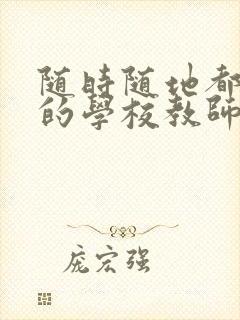 随時随地都
的學校教師
庞宏强